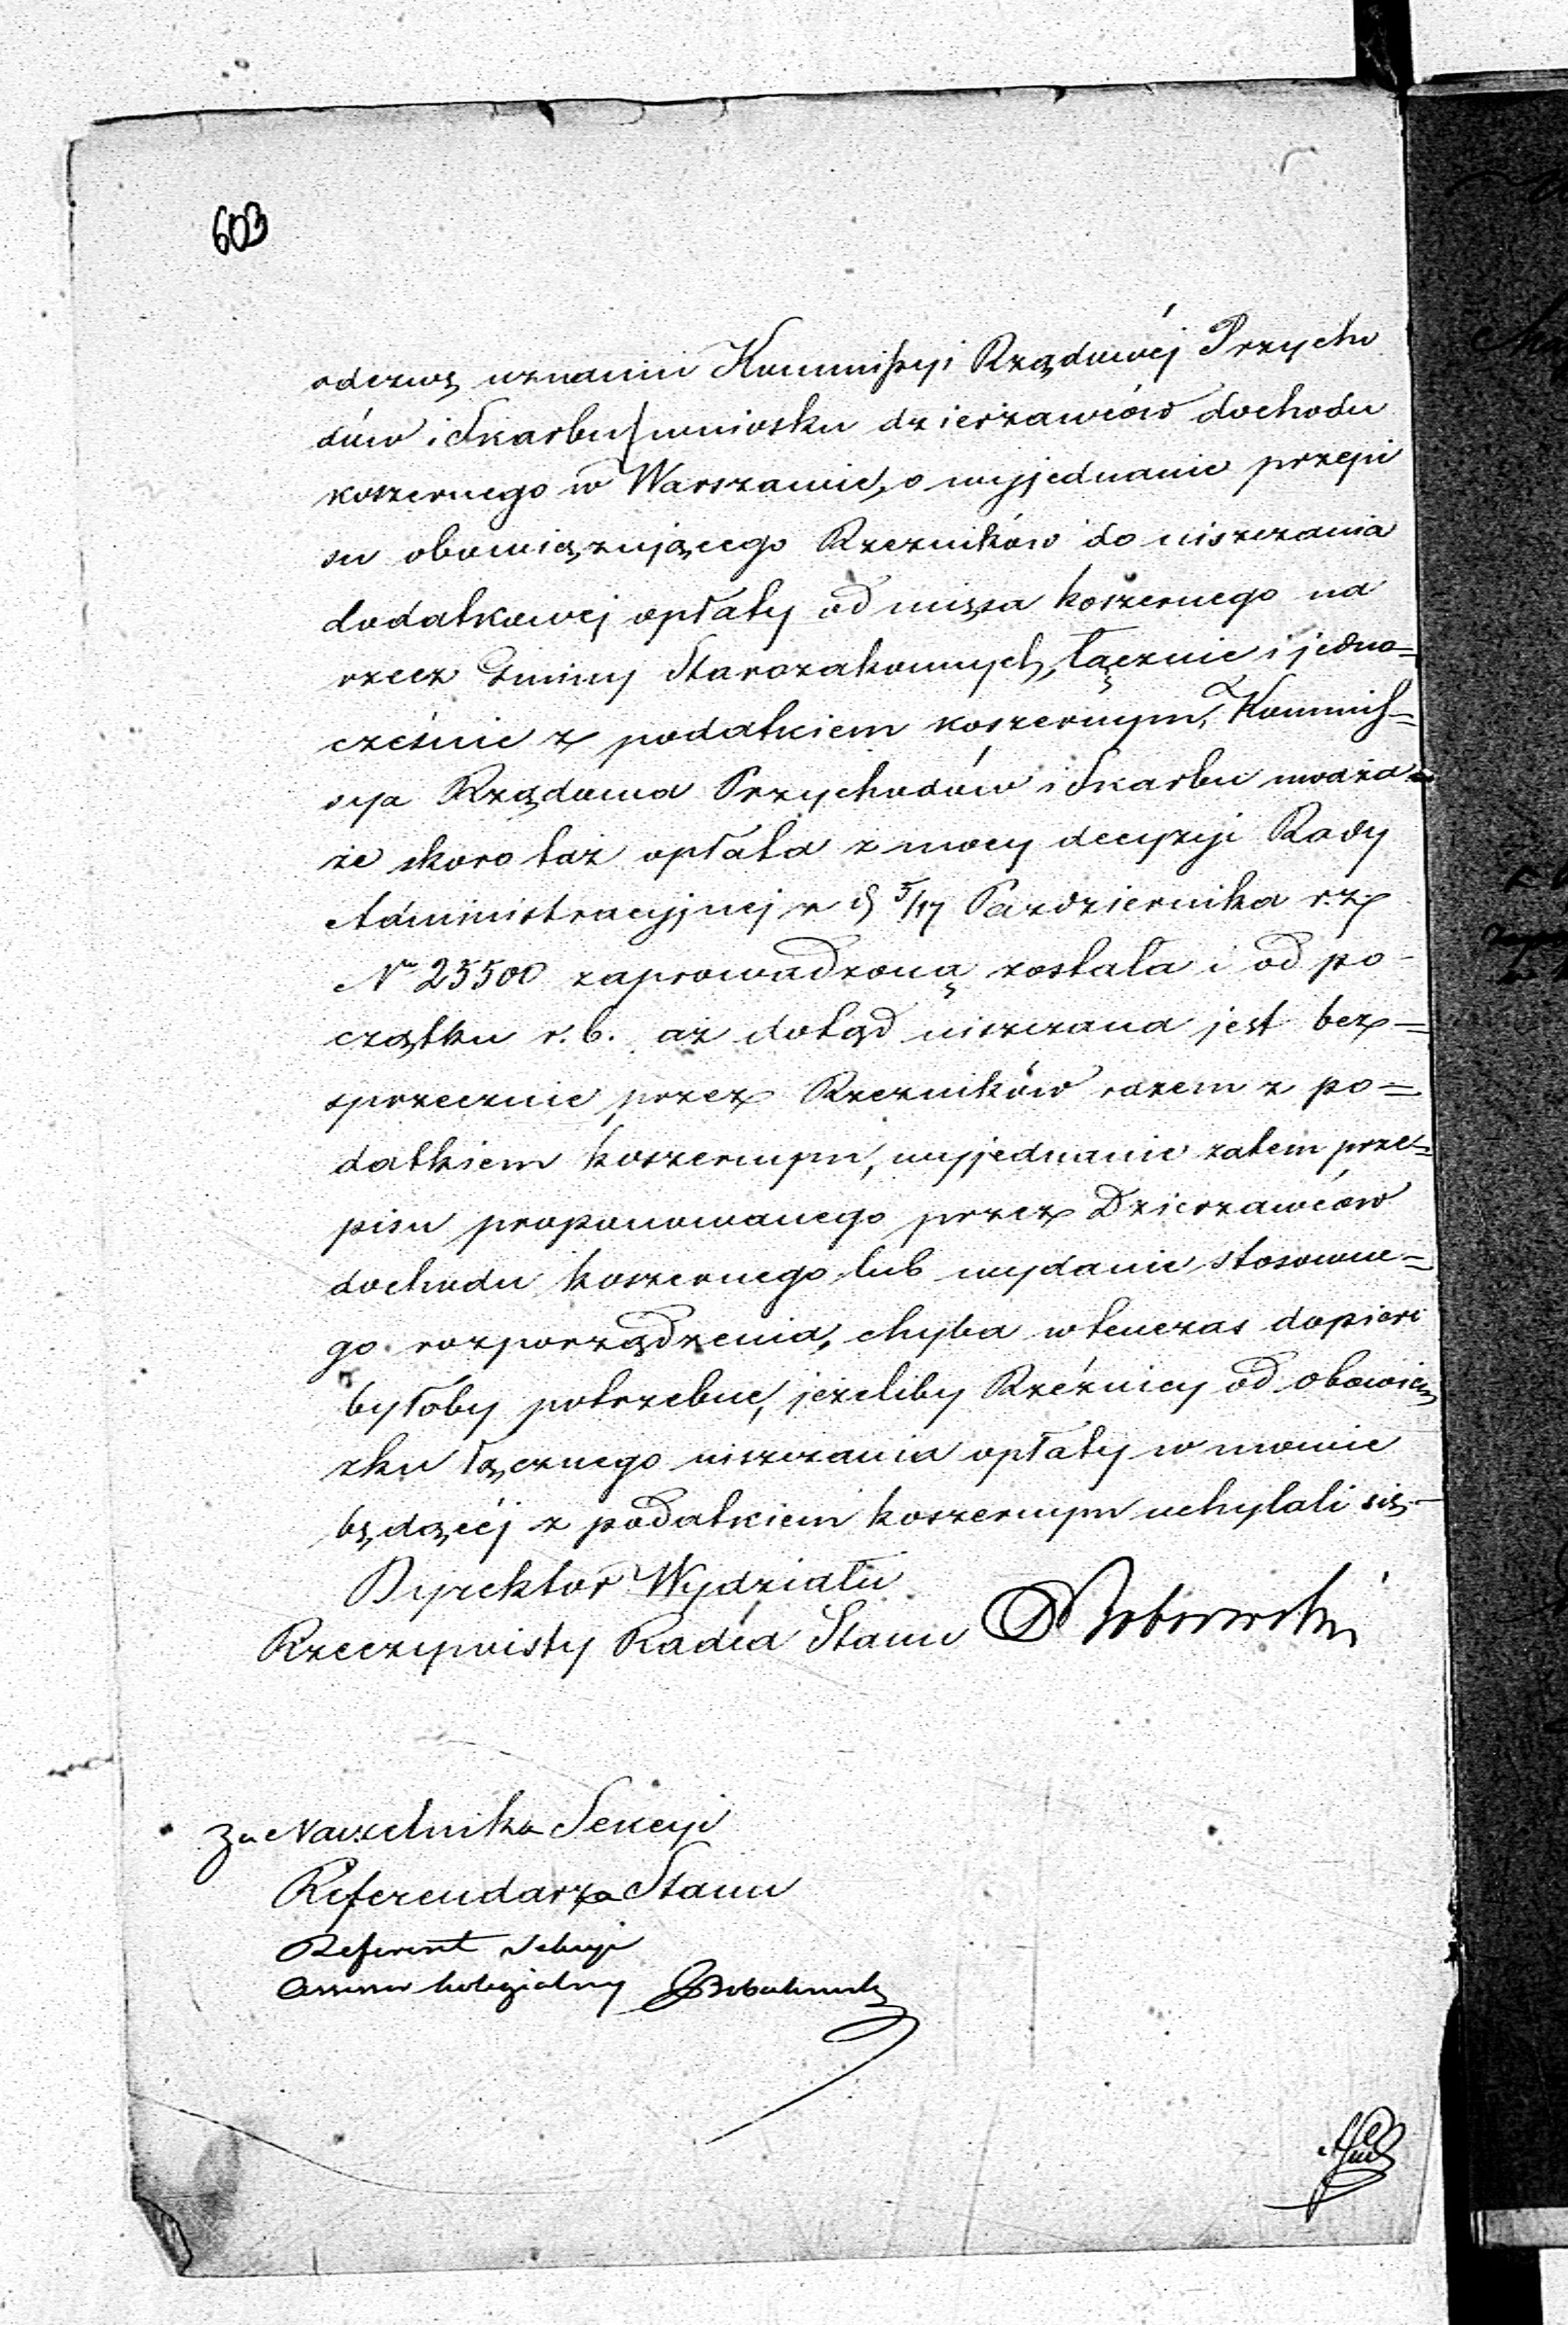 603
odezwą uznaniu Kommissyi Rządowéj Przycho
dów i Skarbu wniosku dzierżawców dochodu
koszernego w Warszawie, o wyjednanie przepi
su obowiązującego Rzezników do uiszczania
dodatkowej opłaty od mięsa koszernego na
rzecz Gminy Starozakonnych, łącznie i jedno=
cześnie z podatkiem koszernym, Kommis=
sya Rządowa Przychodów i Skarbu uważa
że skoro taż opłata z mocy decyzyi Rady
Administracyjnej z d 5/17 Października r. z.
No 25500 zaprowadzoną została i od po-
czątku r. b. aż dotąd uiszczana jest bez=
sprzecznie przez Rzezników razem z po=
datkiem koszernym, wyjednanie zatem prze=
pisu proponowanego przez Dzierzawców
dochodu koszernego lub wydanie stosowne=
go rozporządzenia, chyba wtenczas dopiero
byłoby potrzebne, jeżeliby Rzeźnicy od obowią
zku łącznego uiszczania opłaty w mowie
będącéj z podatkiem koszernym uchylali się.—
Dyrektor Wydziału
Rzeczywisty Radca Stanu
Za Naczelnika Sekcyi
Referendarza Stanu
Referent Sekcyi
Assessor kolegialny